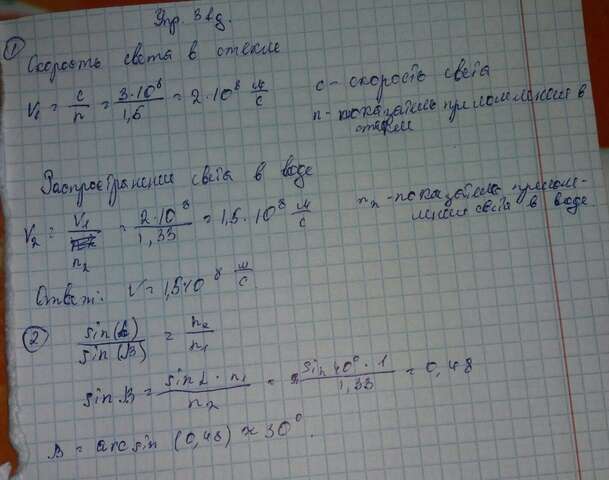 Упр. 3 вд.
① Скорость света в стекле
V₁ = c/n = 3·10⁸/1,5 = 2·10⁸ м/с
c - скорость света
n - показатель преломления в стекле
Распространение света в воде
V₂ = V₁/n₂ = 2·10⁸/1,33 = 1,5·10⁸ м/с
n₂ - показатель прелом-
ления света в воде
Ответ: V = 1,5·10⁸ м/с.
② sin(α)/sin(β) = n₂/n₁
sin β = sin α · n₁/n₂ = sin 40° · 1/1,33 = 0,48
β = arcsin (0,48) ≈ 30°.